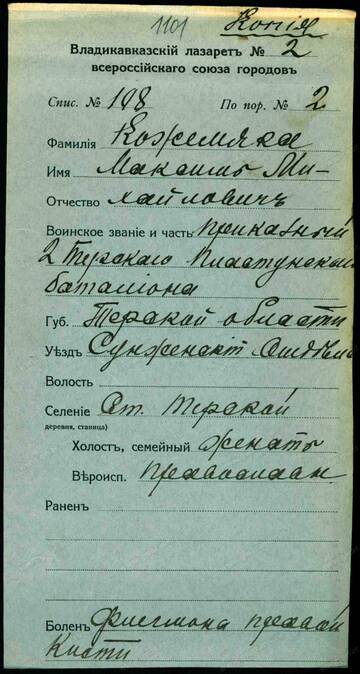 1101 Копія
Владикавказскій лазаретъ № 2
всероссійскаго союза городовъ
Спис. № 198 По пор. № 2
Фамилія Кожемяка
Имя Максимъ Ми-
Отчество хайловичъ
Воинское званіе и часть приказный
2 Терскаго Пластунскаго
баталіона
Губ. Терской области
Уѣздъ Сунженскій
Волость
Селеніе Ст. Терской
деревня, станица)
Холостъ, семейный женатъ
Вѣроисп. православн.
Раненъ
Боленъ Флегмона правой
Кисти